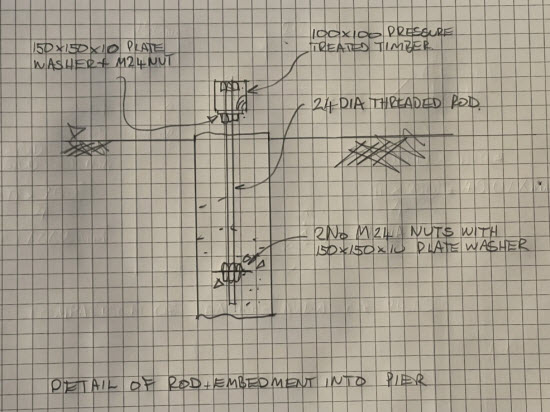 150x150x10 PLATE
WASHER + M24 NUT
100x100 PRESSURE
TREATED TIMBER
24 DIA THREADED ROD.
2No M24 NUTS WITH
150x150x10 PLATE WASHER
DETAIL OF ROD + EMBEDMENT INTO PIER